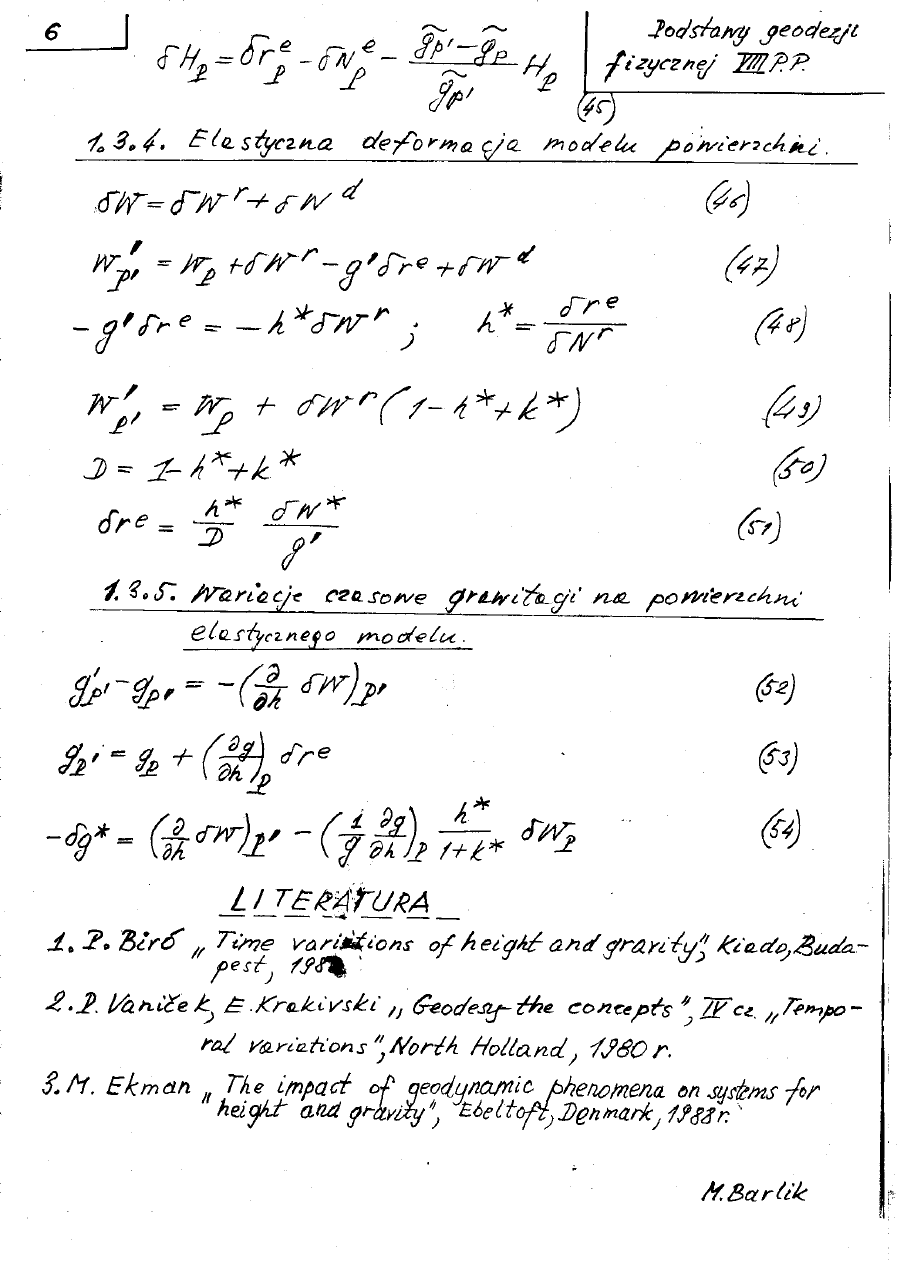 6
Podstawy geodezji
fizycznej VIII P.P.
δH_P = δr^e_P - δN^e_P - (g̃_P' - g̃_P)/g̃_P' H_P (45)
1.3.4. Elastyczna deformacja modelu powierzchni.
δW = δW^r + δW^d (46)
W'_P' = W_P + δW^r - g'δr^e + δW^d (47)
- g'δr^e = - h*δW^r ; h* = δr^e/δN^r (48)
W'_P' = W_P + δW^r (1 - h* + k*) (49)
D = 1 - h* + k* (50)
δr^e = h*/D δW*/g' (51)
1.3.5. Wariacje czasowe grawitacji na powierzchni
elastycznego modelu.
g'_P' - g_P' = -(∂/∂h δW)_P' (52)
g_P' = g_P + (∂g/∂h)_P δr^e (53)
-δg* = (∂/∂h δW)_P' - (1/g ∂g/∂h)_P h*/(1+k*) δW_P (54)
LITERATURA
1. P. Biró „Time variations of height and gravity", Kiado, Buda-
pest,
2. P. Vaniček, E. Krakivski „Geodesy the concepts", IV cz. „Tempo-
ral variations", North Holland, 1980 r.
3. M. Ekman „The impact of geodynamic phenomena on systems for
height and gravity", Ebeltoft, Denmark, 1988 r.
M. Barlik